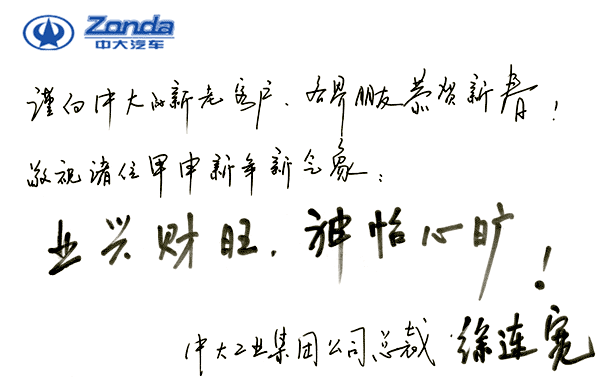 Zonda
中大汽车
谨向中大的新老客户、各界朋友恭贺新春！
敬祝诸位甲申新年新气象：
业兴财旺，神怡心旷！
中大工业集团公司总裁 徐连宽